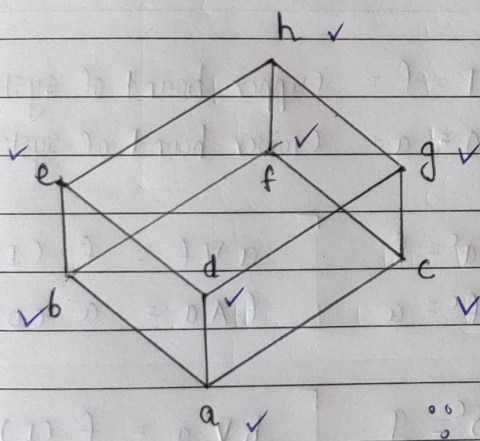 h ✓
✓ e f ✓ g ✓
d ✓ c
✓ b ✓
a ✓